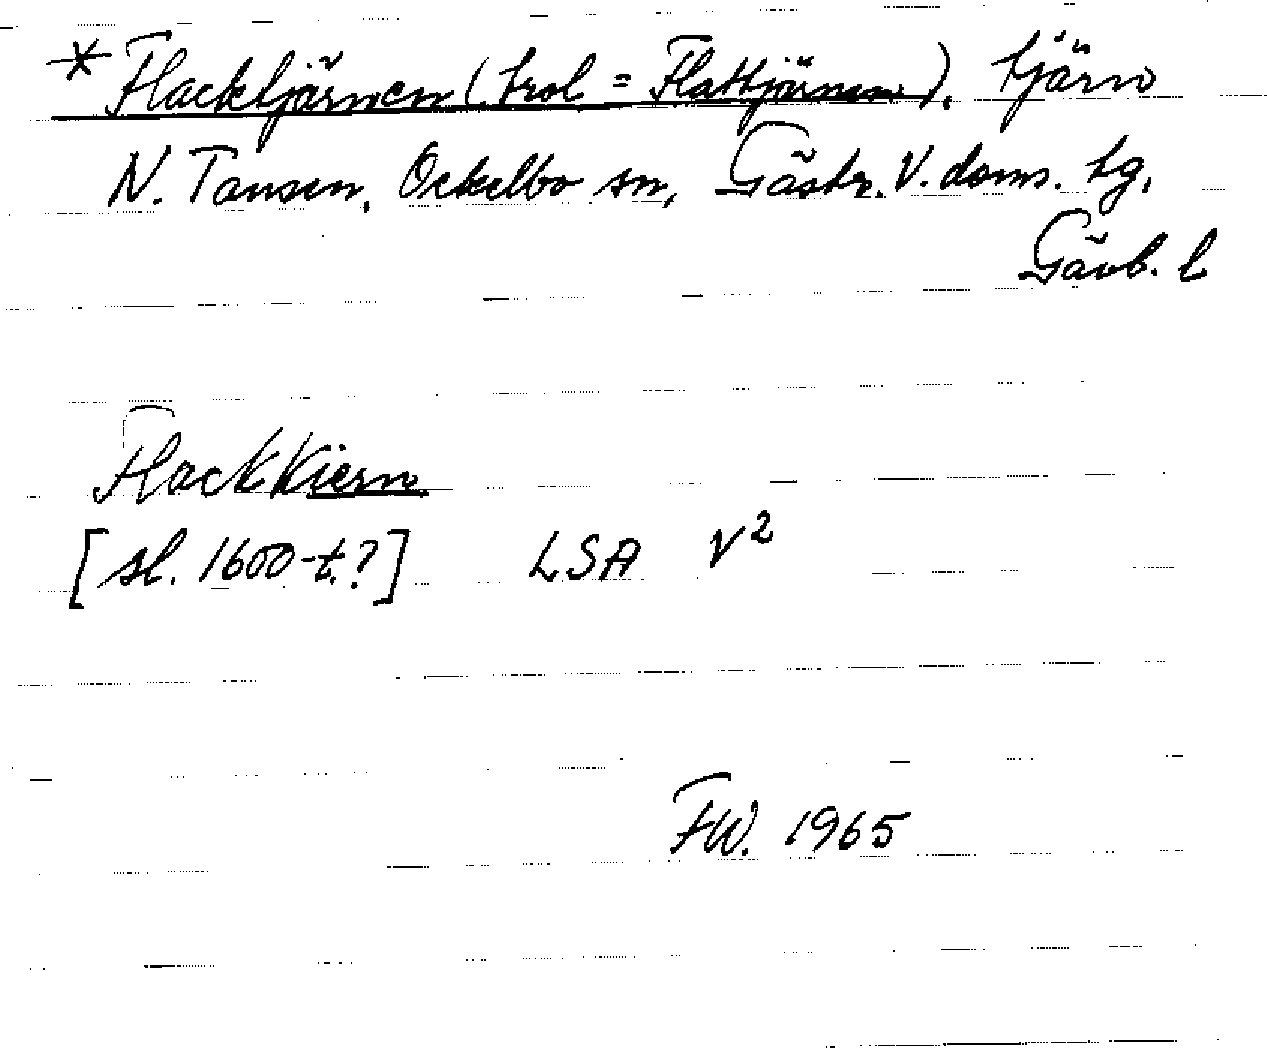 * Flacktjärnen (trol = Flattjärnen), tjärn
N. Tansen, Ockelbo sn, Gästr. V. doms. tg,
Gävb. l
FlackKiern
[sl. 1600-t.?] LSA V²
FW. 1965